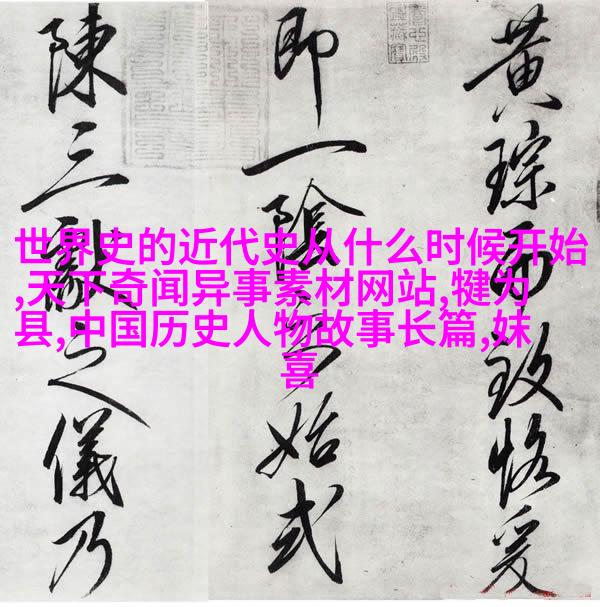 世界史的近代史从什么时候开始
,天下奇闻异事素材网站,犍为
县,中国历史人物故事长篇,妹
喜
黄琮而致恪爰
即一陰之始式
陳三獻之儀乃